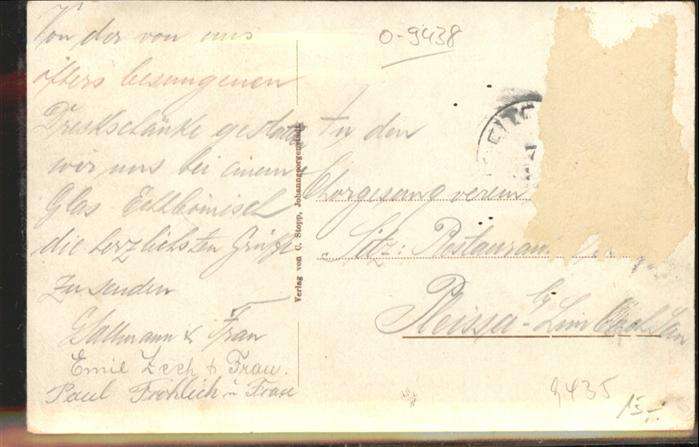 Von der von uns
öfters besungenen
Dreckschänke gestatten
wir uns bei einem
Glas Echtbömisch
die herzlichsten Grüße
zu senden
Wallmann & Frau
Emil Zech & Frau.
Paul Fröhlich u Frau
Verlag von C. Stopp, Johanngeorgenstadt
0-9438
An den
Chorgesangverein
Sitz: Restauran
Pleissa
b/ Limbach San
9435
15.-